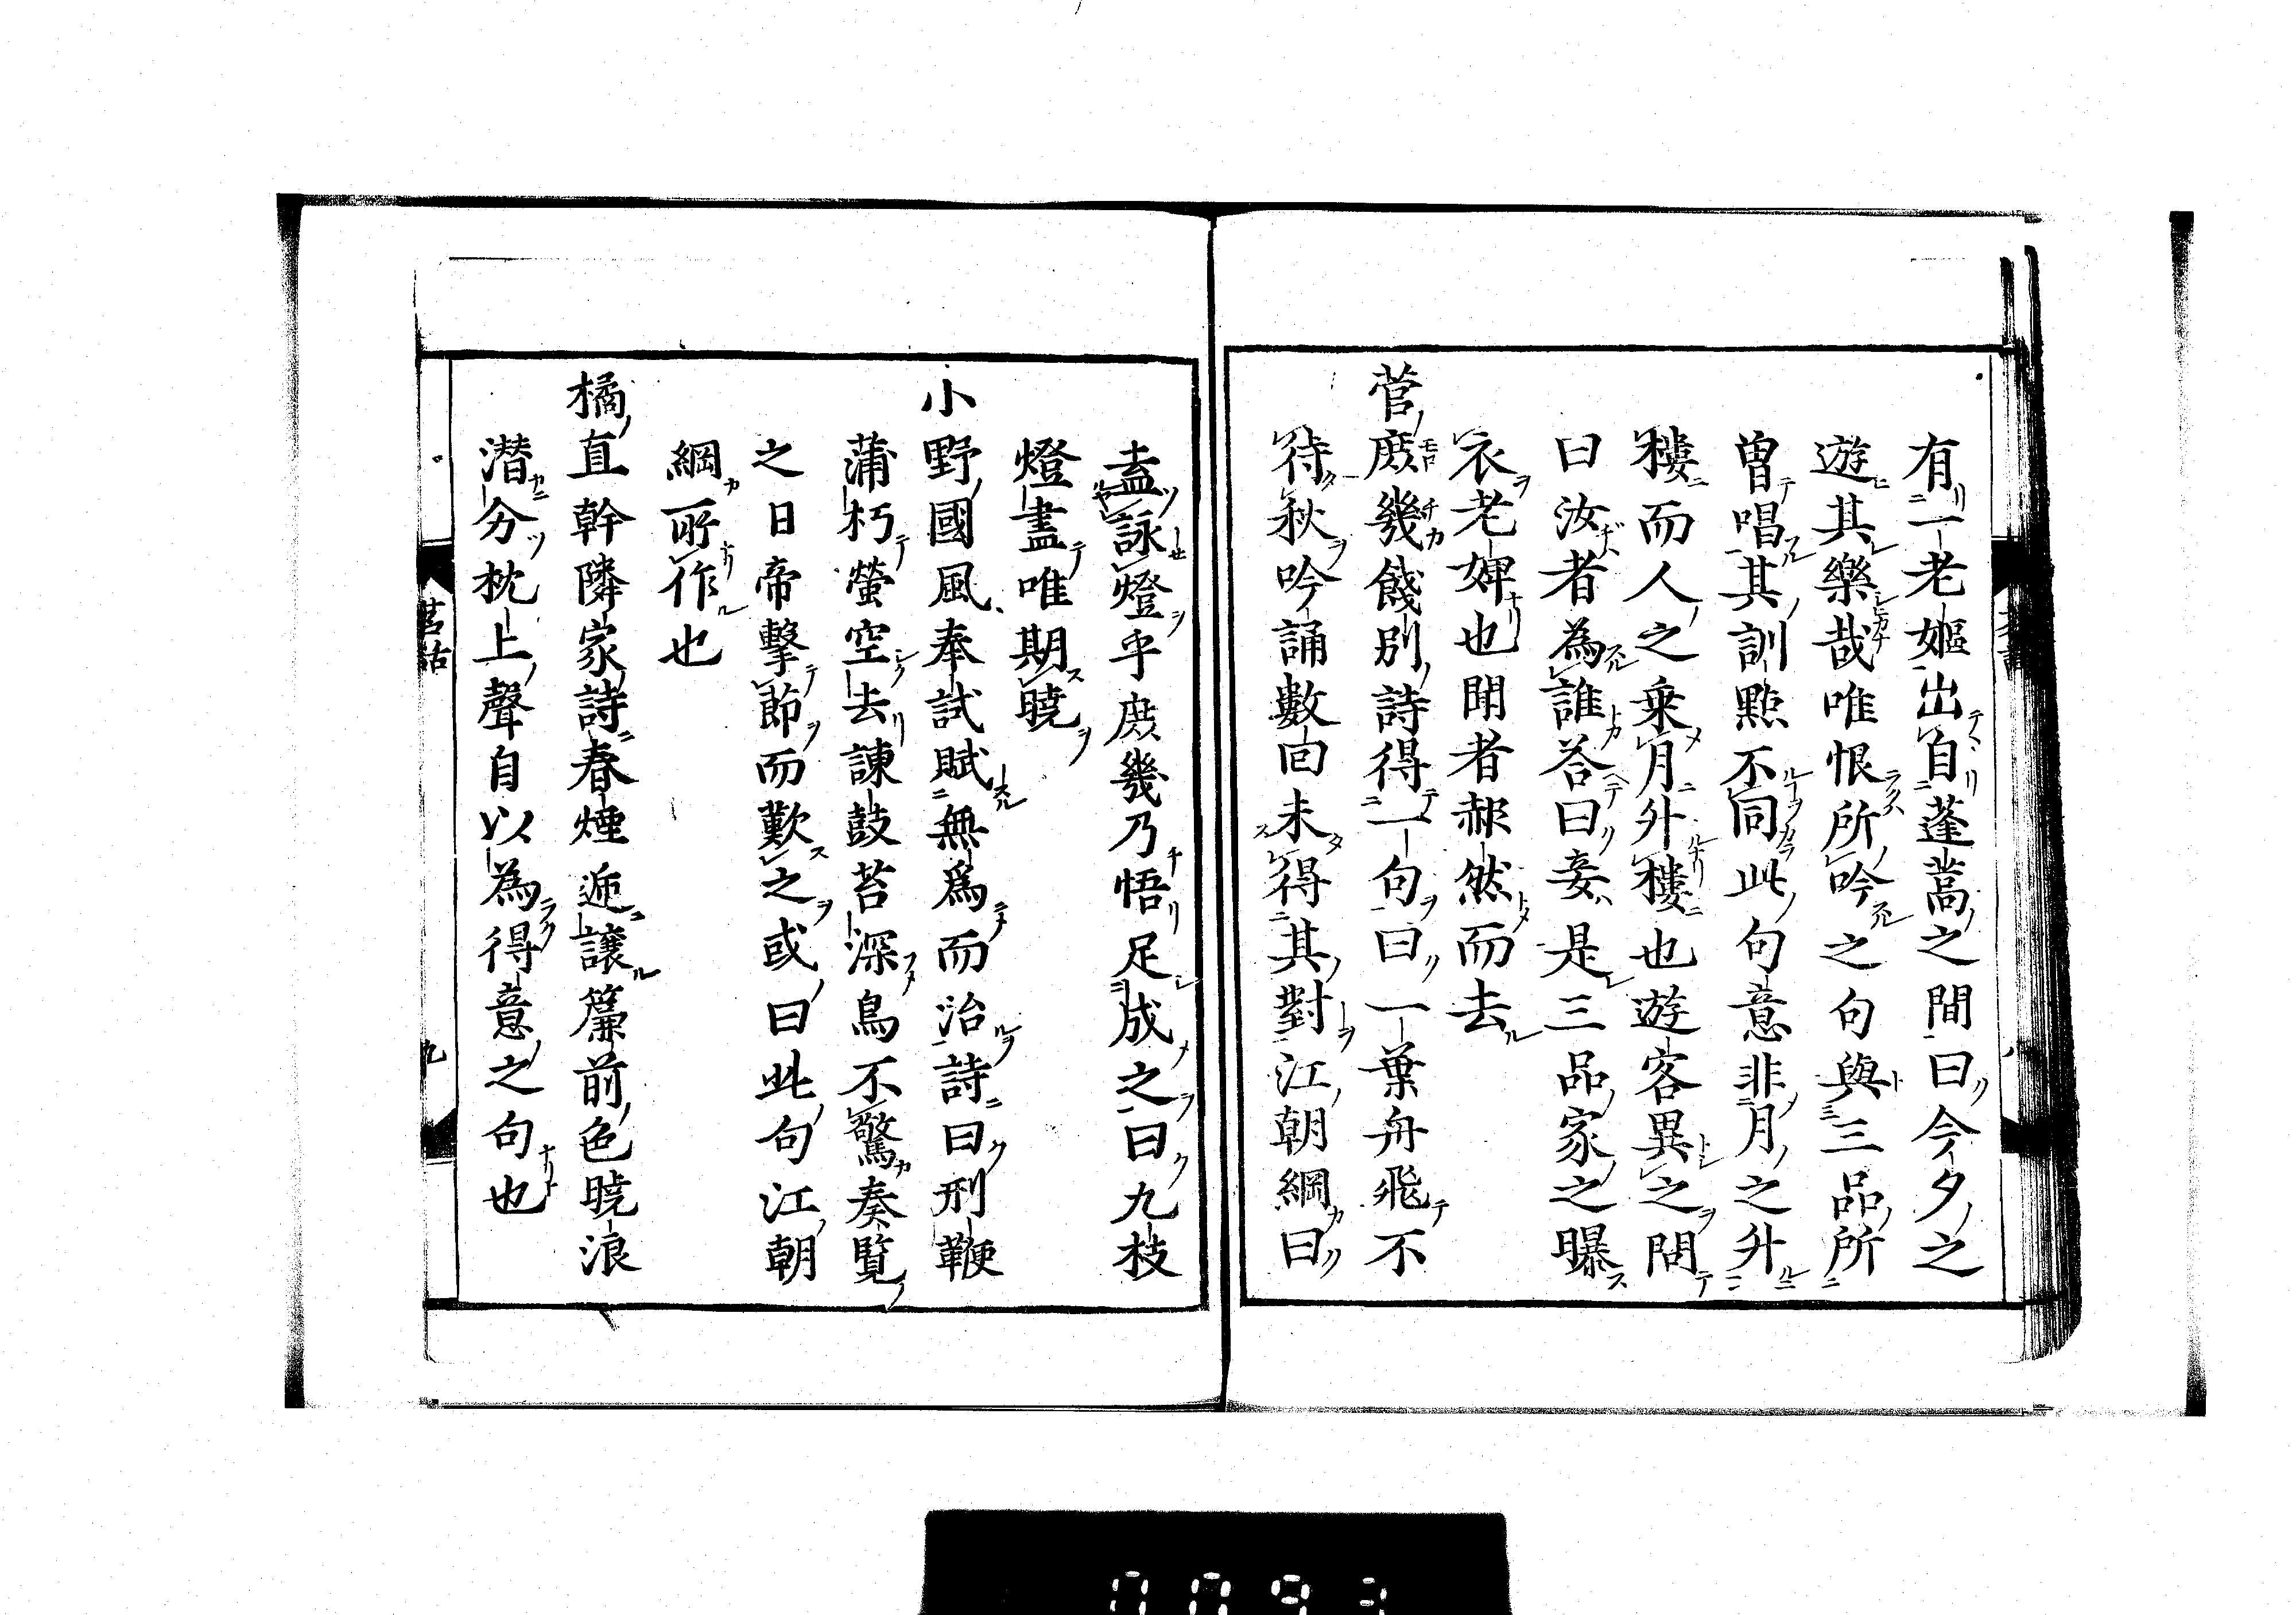 有一老嫗出自蓬蒿之間曰今夕之
遊其樂哉唯恨所吟之句與三品所
曽唱其訓點不同此句意非月之升
樓而人之乗月升樓也遊客異之問
曰汝者為誰荅曰妾是三品家之曝
衣老婢也聞者赧然而去
菅庶幾餞别詩得一句曰一葉舟飛不
待秋吟誦數回未得其對江朝綱曰
盍詠燈乎庶幾乃悟足成之曰九枝
燈盡唯期曉
小野國風奉試賦無爲而治詩曰刑鞭
蒲朽螢空去諌鼓苔深鳥不驚奏覧
之日帝擊節而歎之或曰此句江朝
綱所作也
橘直幹隣家詩春煙逓讓簾前色曉浪
潜分枕上聲自以為得意之句也
茗話
九
0093